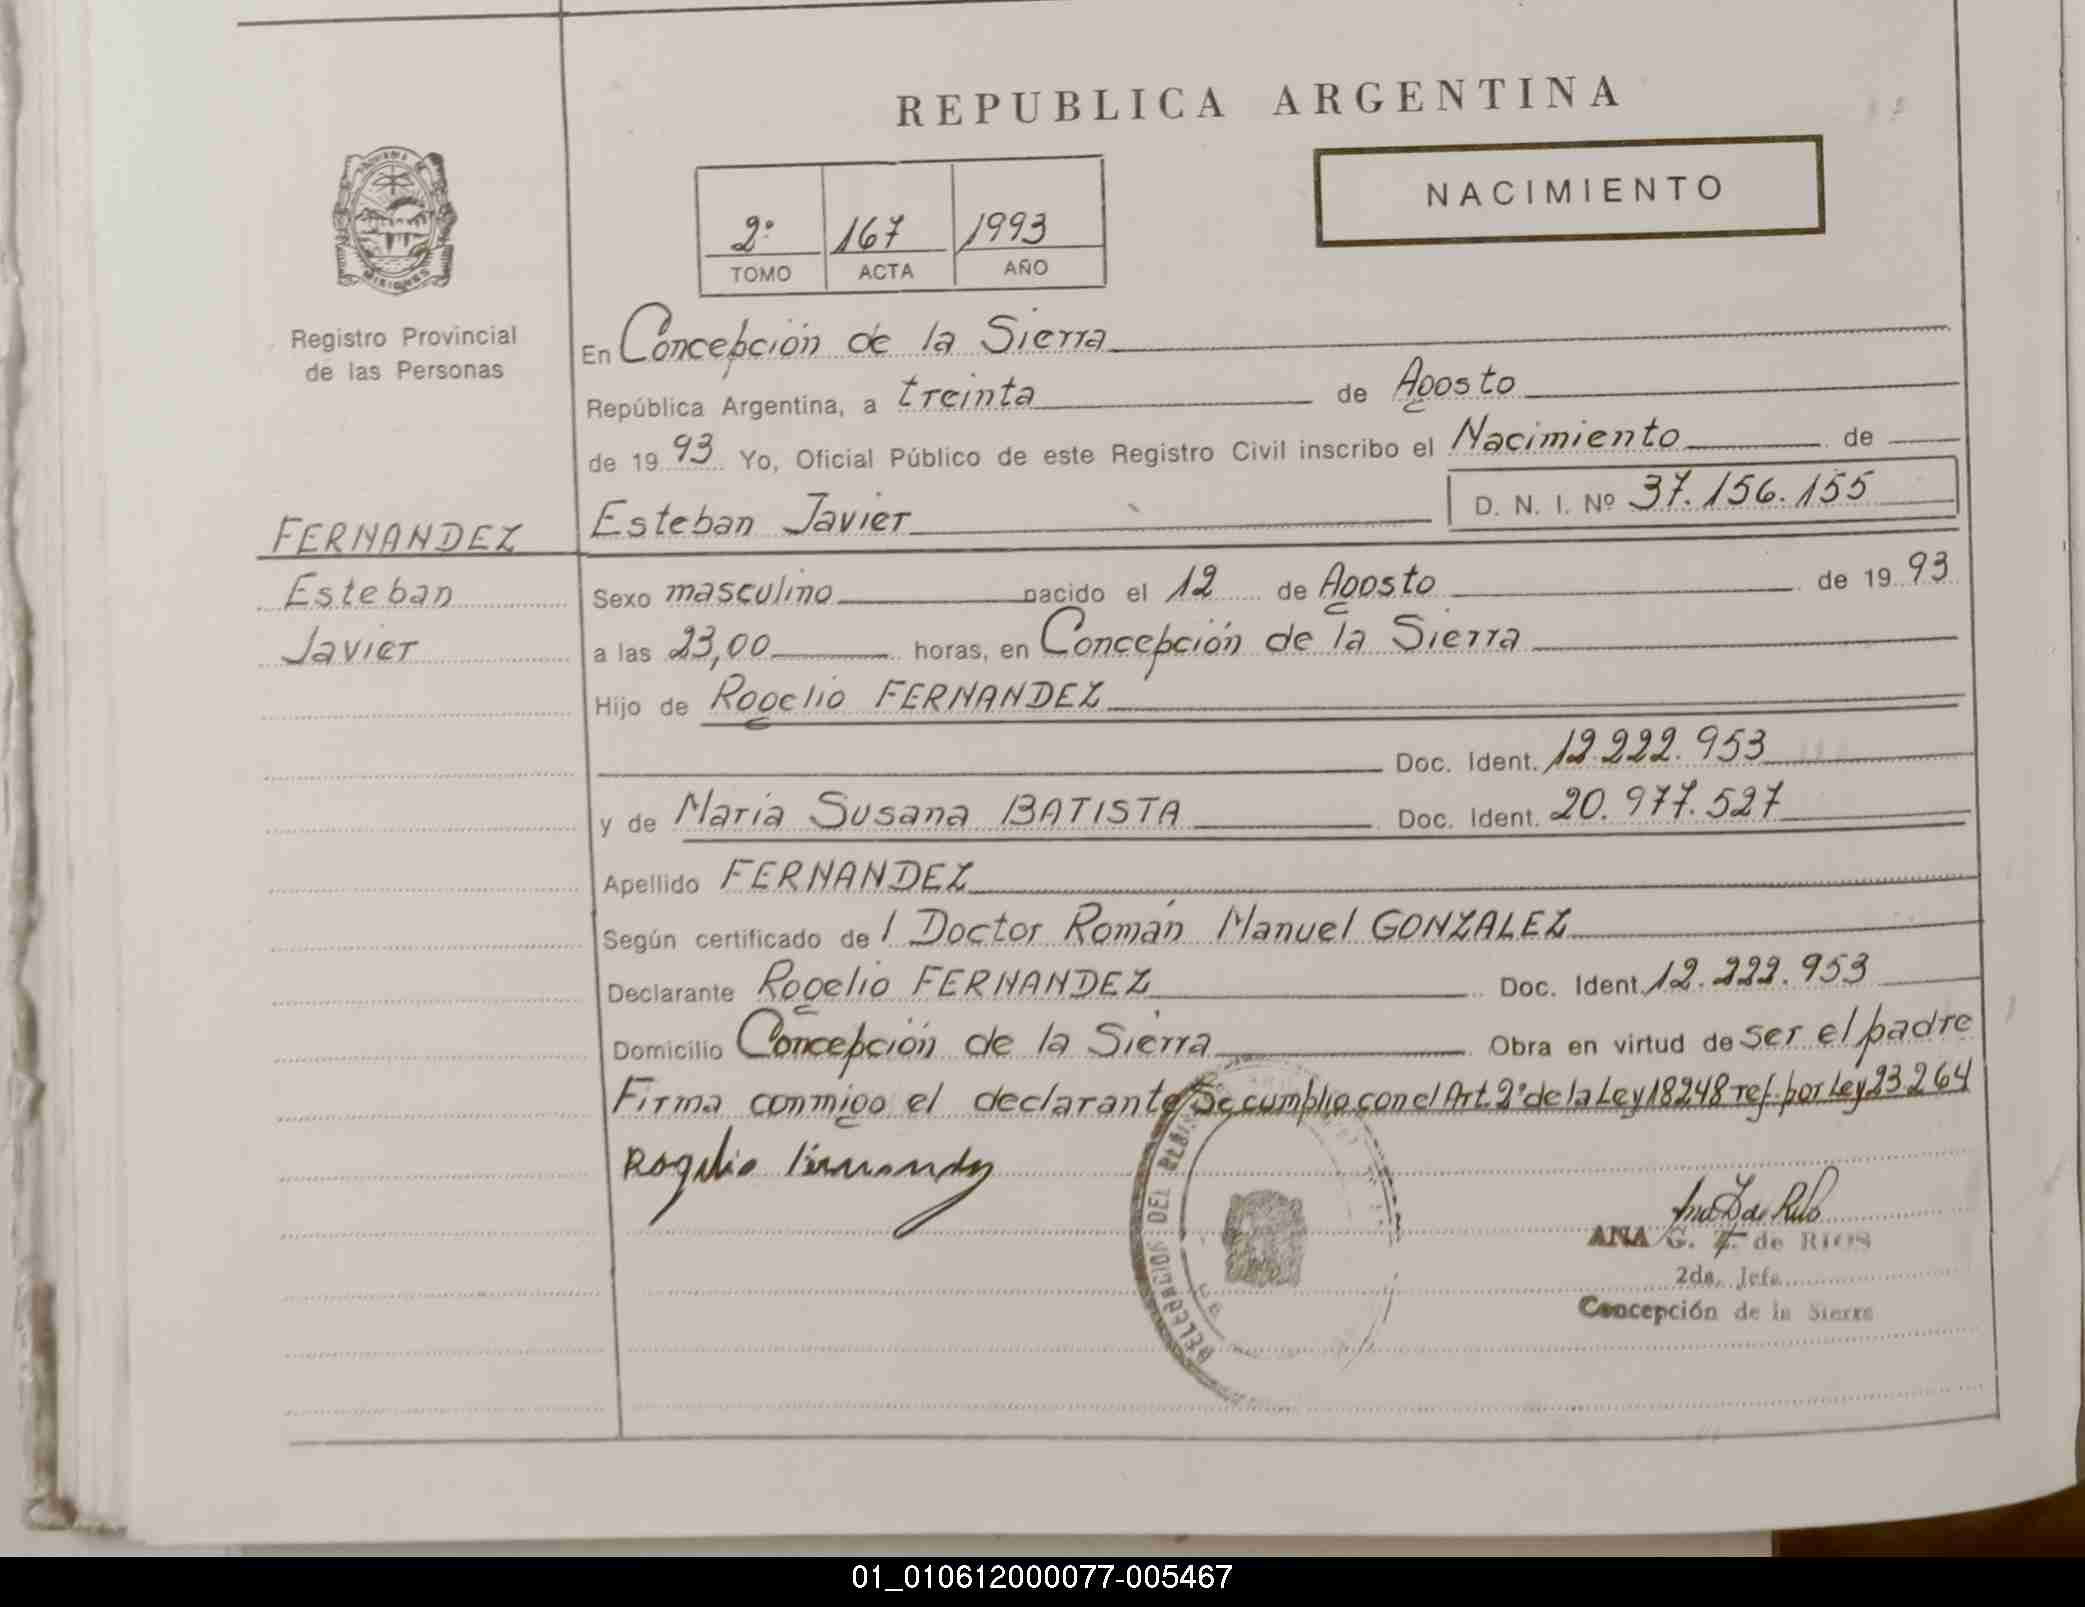 REPUBLICA ARGENTINA
NACIMIENTO
2º 167 1993
TOMO ACTA AÑO
MISIONES
Registro Provincial
de las Personas
En Concepción de la Sierra
República Argentina, a treinta de Agosto
de 19 93 Yo, Oficial Público de este Registro Civil inscribo el Nacimiento de
Esteban Javier D. N. I. Nº 37.156.155
FERNANDEZ
Esteban
Javier
Sexo masculino nacido el 12 de Agosto de 19 93
a las 23,00 horas, en Concepción de la Sierra
Hijo de Rogelio FERNANDEZ
Doc. Ident. 12.222.953
y de María Susana BATISTA Doc. Ident. 20.977.527
Apellido FERNANDEZ
Según certificado de l Doctor Román Manuel GONZALEZ
Declarante Rogelio FERNANDEZ Doc. Ident. 12.222.953
Domicilio Concepción de la Sierra Obra en virtud de ser el padre
Firma conmigo el declarante Se cumplio con el Art. 2º de la Ley 18248 ref. por Ley 23.264
Rogelio Fernandez
DELEGACION DEL
ANA G. de RIOS
2da. Jefa
Concepción de la Sierra
01_010612000077-005467